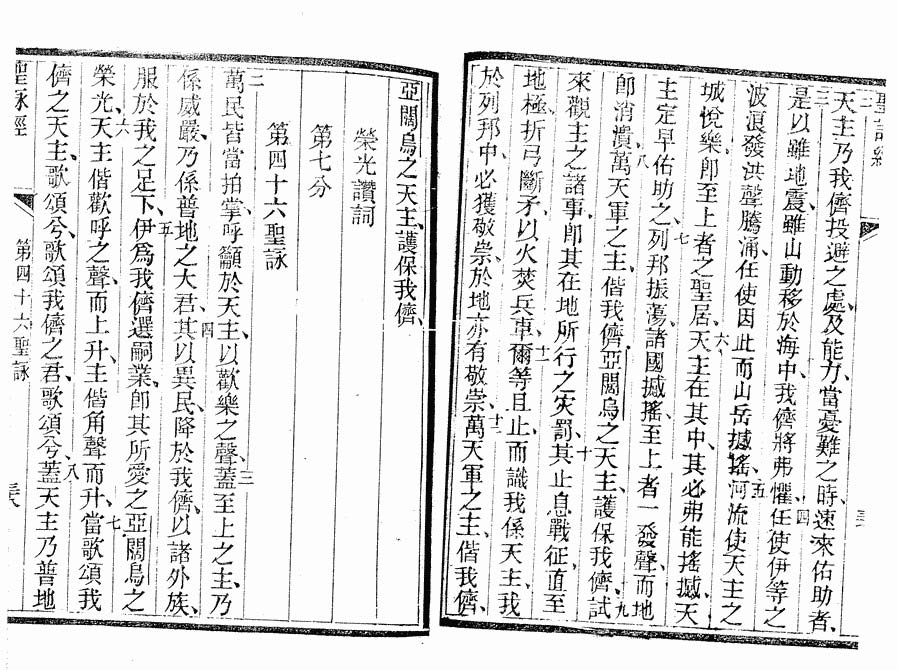 聖詠經
三七
二天主乃我儕投避之處、及能力、當憂難之時、速來佑助者、
三是以雖地震、雖山動移於海中、我儕將弗懼、四任使伊等之
波浪發洪聲騰涌、任使因此而山岳撼搖、五河流使天主之
城悅樂、卽至上者之聖居、六天主在其中、其必弗能搖撼、天
主定早佑助之、七列邦振蕩、諸國撼搖、至上者一發聲、而地
卽消潰、八萬天軍之主、偕我儕、亞闊烏之天主、護保我儕、九試
來觀主之諸事、卽其在地所行之灾罰、十其止息戰征、直至
地極、折弓斷矛、以火焚兵車、十一爾等且止、而識我係天主、我
於列邦中、必獲敬崇、於地亦有敬崇、十二萬天軍之主、偕我儕、
亞闊烏之天主、護保我儕、
榮光讚詞
第七分
第四十六聖詠
二萬民皆當拍掌、呼籲於天主、以歡樂之聲、三蓋至上之主、乃
係威嚴、乃係普地之大君、四其以異民降於我儕、以諸外族、
服於我之足下、五伊爲我儕選嗣業、卽其所愛之亞闊烏之
榮光、六天主偕歡呼之聲而上升、主偕角聲而升、七當歌頌我
儕之天主、歌頌兮、歌頌我儕之君、歌頌兮、八蓋天主乃普地
聖詠經
第四十六聖詠
三八